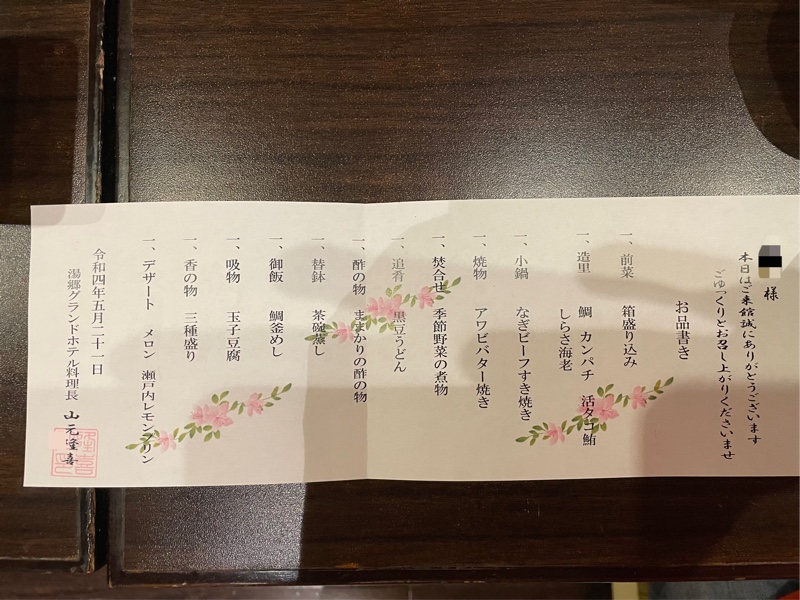 様
本日はご来館誠にありがとうございます
ごゆっくりとお召し上がりくださいませ
お品書き
一、前菜 箱盛り込み
一、造里 鯛 カンパチ 活タコ 鮪
しらさ海老
一、小鍋 なぎビーフすき焼き
一、焼物 アワビバター焼き
一、焚合せ 季節野菜の煮物
一、追肴 黒豆うどん
一、酢の物 ままかりの酢の物
一、替鉢 茶碗蒸し
一、御飯 鯛釜めし
一、吸物 玉子豆腐
一、香の物 三種盛り
一、デザート メロン 瀬戸内レモンプリン
令和四年五月二十一日
湯郷グランドホテル料理長 山元隆喜